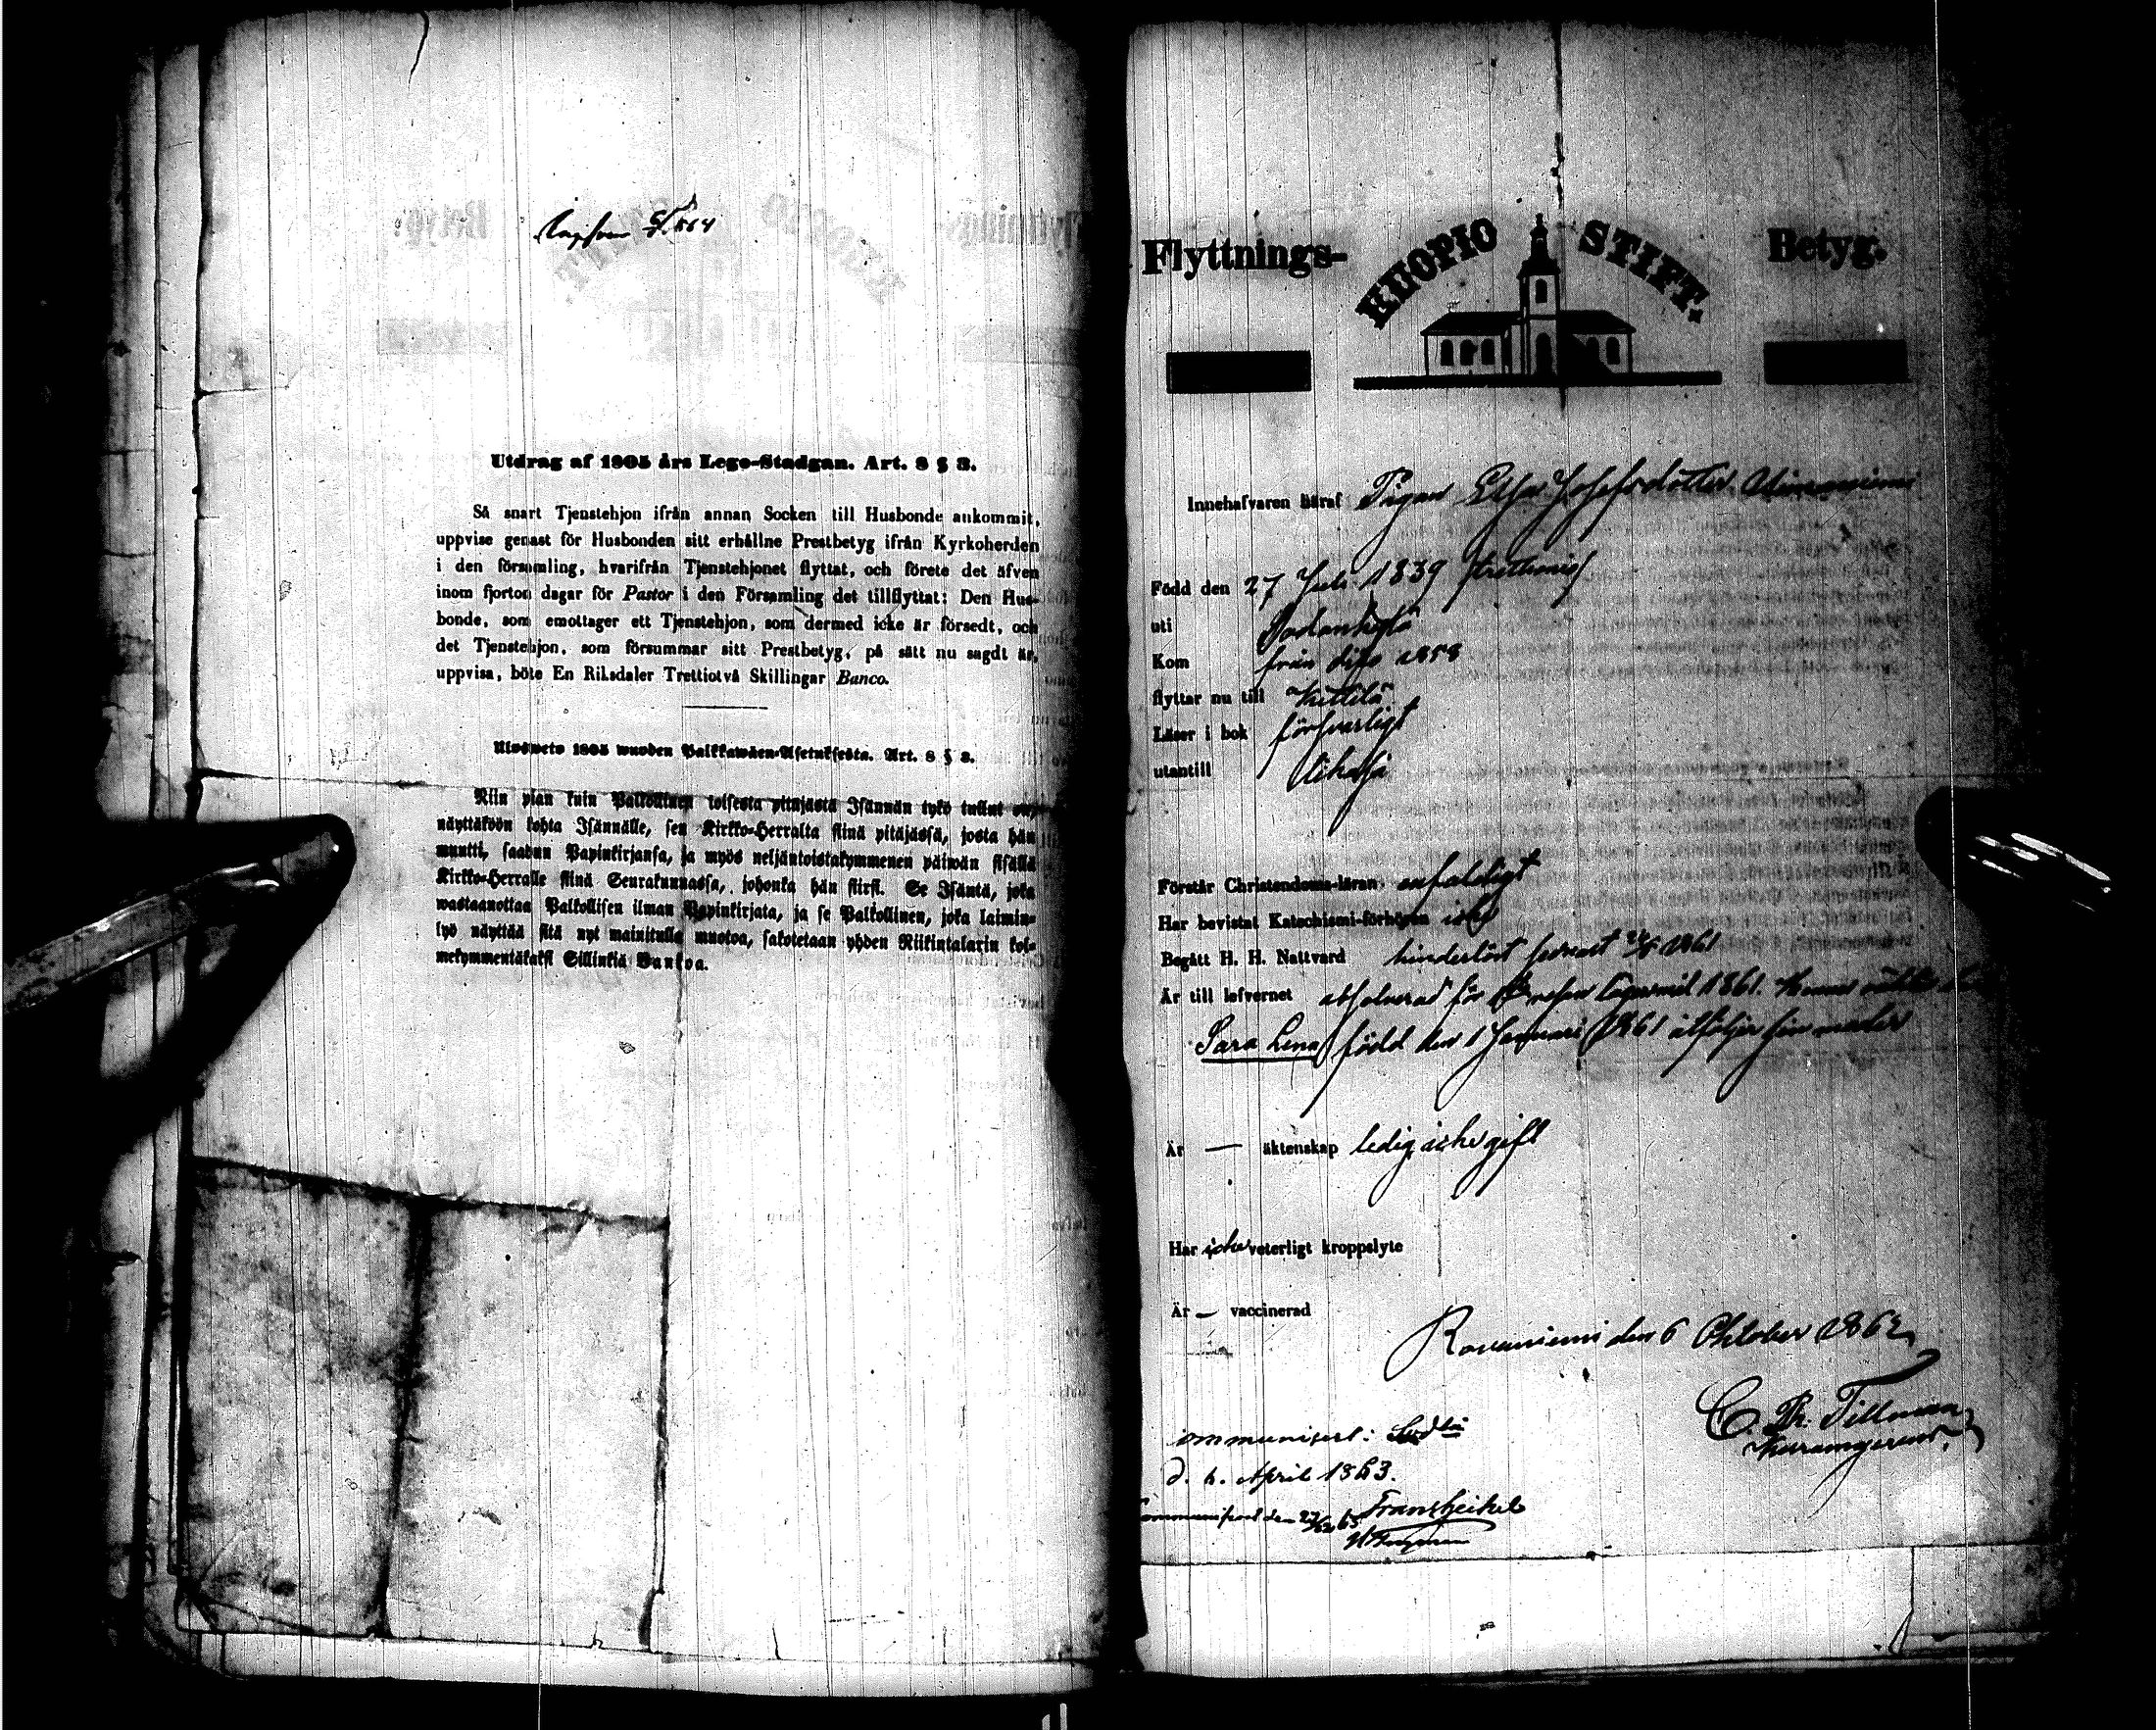 Utdrag af 1805 års Lego-Stadgan. Art. 8 § 3.
Så snart Tjenstehjon ifrån annan Socken till Husbonde ankommit,
uppvise genast för Husbonden sitt erhållne Prestbetyg ifrån Kyrkoherden
i den församling, hvarifrån Tjenstehjonet flyttat, och förete det äfven
inom fjorton dagar för Pastor i den Församling det tillflyttat: Den Hus-
bonde, som emottager ett Tjenstehjon, som dermed icke är försedt, och
det Tjenstehjon, som försummar sitt Prestbetyg, på sätt nu sagdt är,
uppvisa, böte En Riksdaler Trettiotvå Skillingar Banco.
Ulosweto 1805 wuoden Palkkawäen-Asetuksesta. Art. 8 § 3.
Niin pian kuin Palkollinen toisesta pitäjästä Isännän tykö tullut
näyttäköön kohta Isännälle, sen Kirkko-Herralta siinä pitäjässä, josta hän
muutti, saadun Papinkirjansa, ja myös neljäntoistakymmenen päiwän sisällä
Kirkko-Herralle siinä Seurakunnassa, johonka hän siirsi. Se Isäntä, joka
wastaanottaa Palkollisen ilman Papinkirjata, ja se Palkollinen, joka laimin-
lyö näyttää sitä nyt mainitulla muotoa, sakotetaan yhden Riikintalarin kol-
mekymmentäkaksi Sillinkiä Bankoa.
Flyttnings- KUOPIO STIFT. Betyg.
Innehafvaren häraf Pigan Elsa Josefsdotter
Född den 27 Juli 1839
uti Sodankylä
Kom från dito 1858
flyttar nu till Kittilä
Läser i bok försvarligt
utantill
Förstår Christendoms-läran enfaldigt
Har bevistat Katechismi-förhören icke
Begått H. H. Nattvard hinderlöst senast 1861
Är till lefvernet absolverad för 1861.
Sara Lena född den 1 Januari 1861 åtföljer sin moder
Är — äktenskap ledig icke gift
Har icke veterligt kroppslyte
Är — vaccinerad
Rovaniemi den 6 Oktober 1862
C. Th. Tillman
ommunicert:
d. 4. April 1863.
Frans Heikel